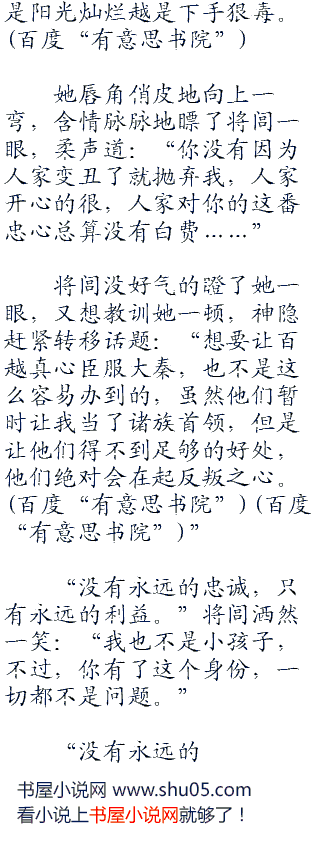 是阳光灿烂越是下手狠毒。
(百度“有意思书院”)
她唇角俏皮地向上一
弯，含情脉脉地瞟了将闾一
眼，柔声道：“你没有因为
人家变丑了就抛弃我，人家
开心的很，人家对你的这番
忠心总算没有白费……”
将闾没好气的瞪了她一
眼，又想教训她一顿，神隐
赶紧转移话题：“想要让百
越真心臣服大秦，也不是这
么容易办到的，虽然他们暂
时让我当了诸族首领，但是
让他们得不到足够的好处，
他们绝对会在起反叛之心。
(百度“有意思书院”)(百度
“有意思书院”)”
“没有永远的忠诚，只
有永远的利益。”将闾洒然
一笑：“我也不是小孩子，
不过，你有了这个身份，一
切都不是问题。”
“没有永远的
书屋小说网 www.shu05.com
看小说上书屋小说网就够了！